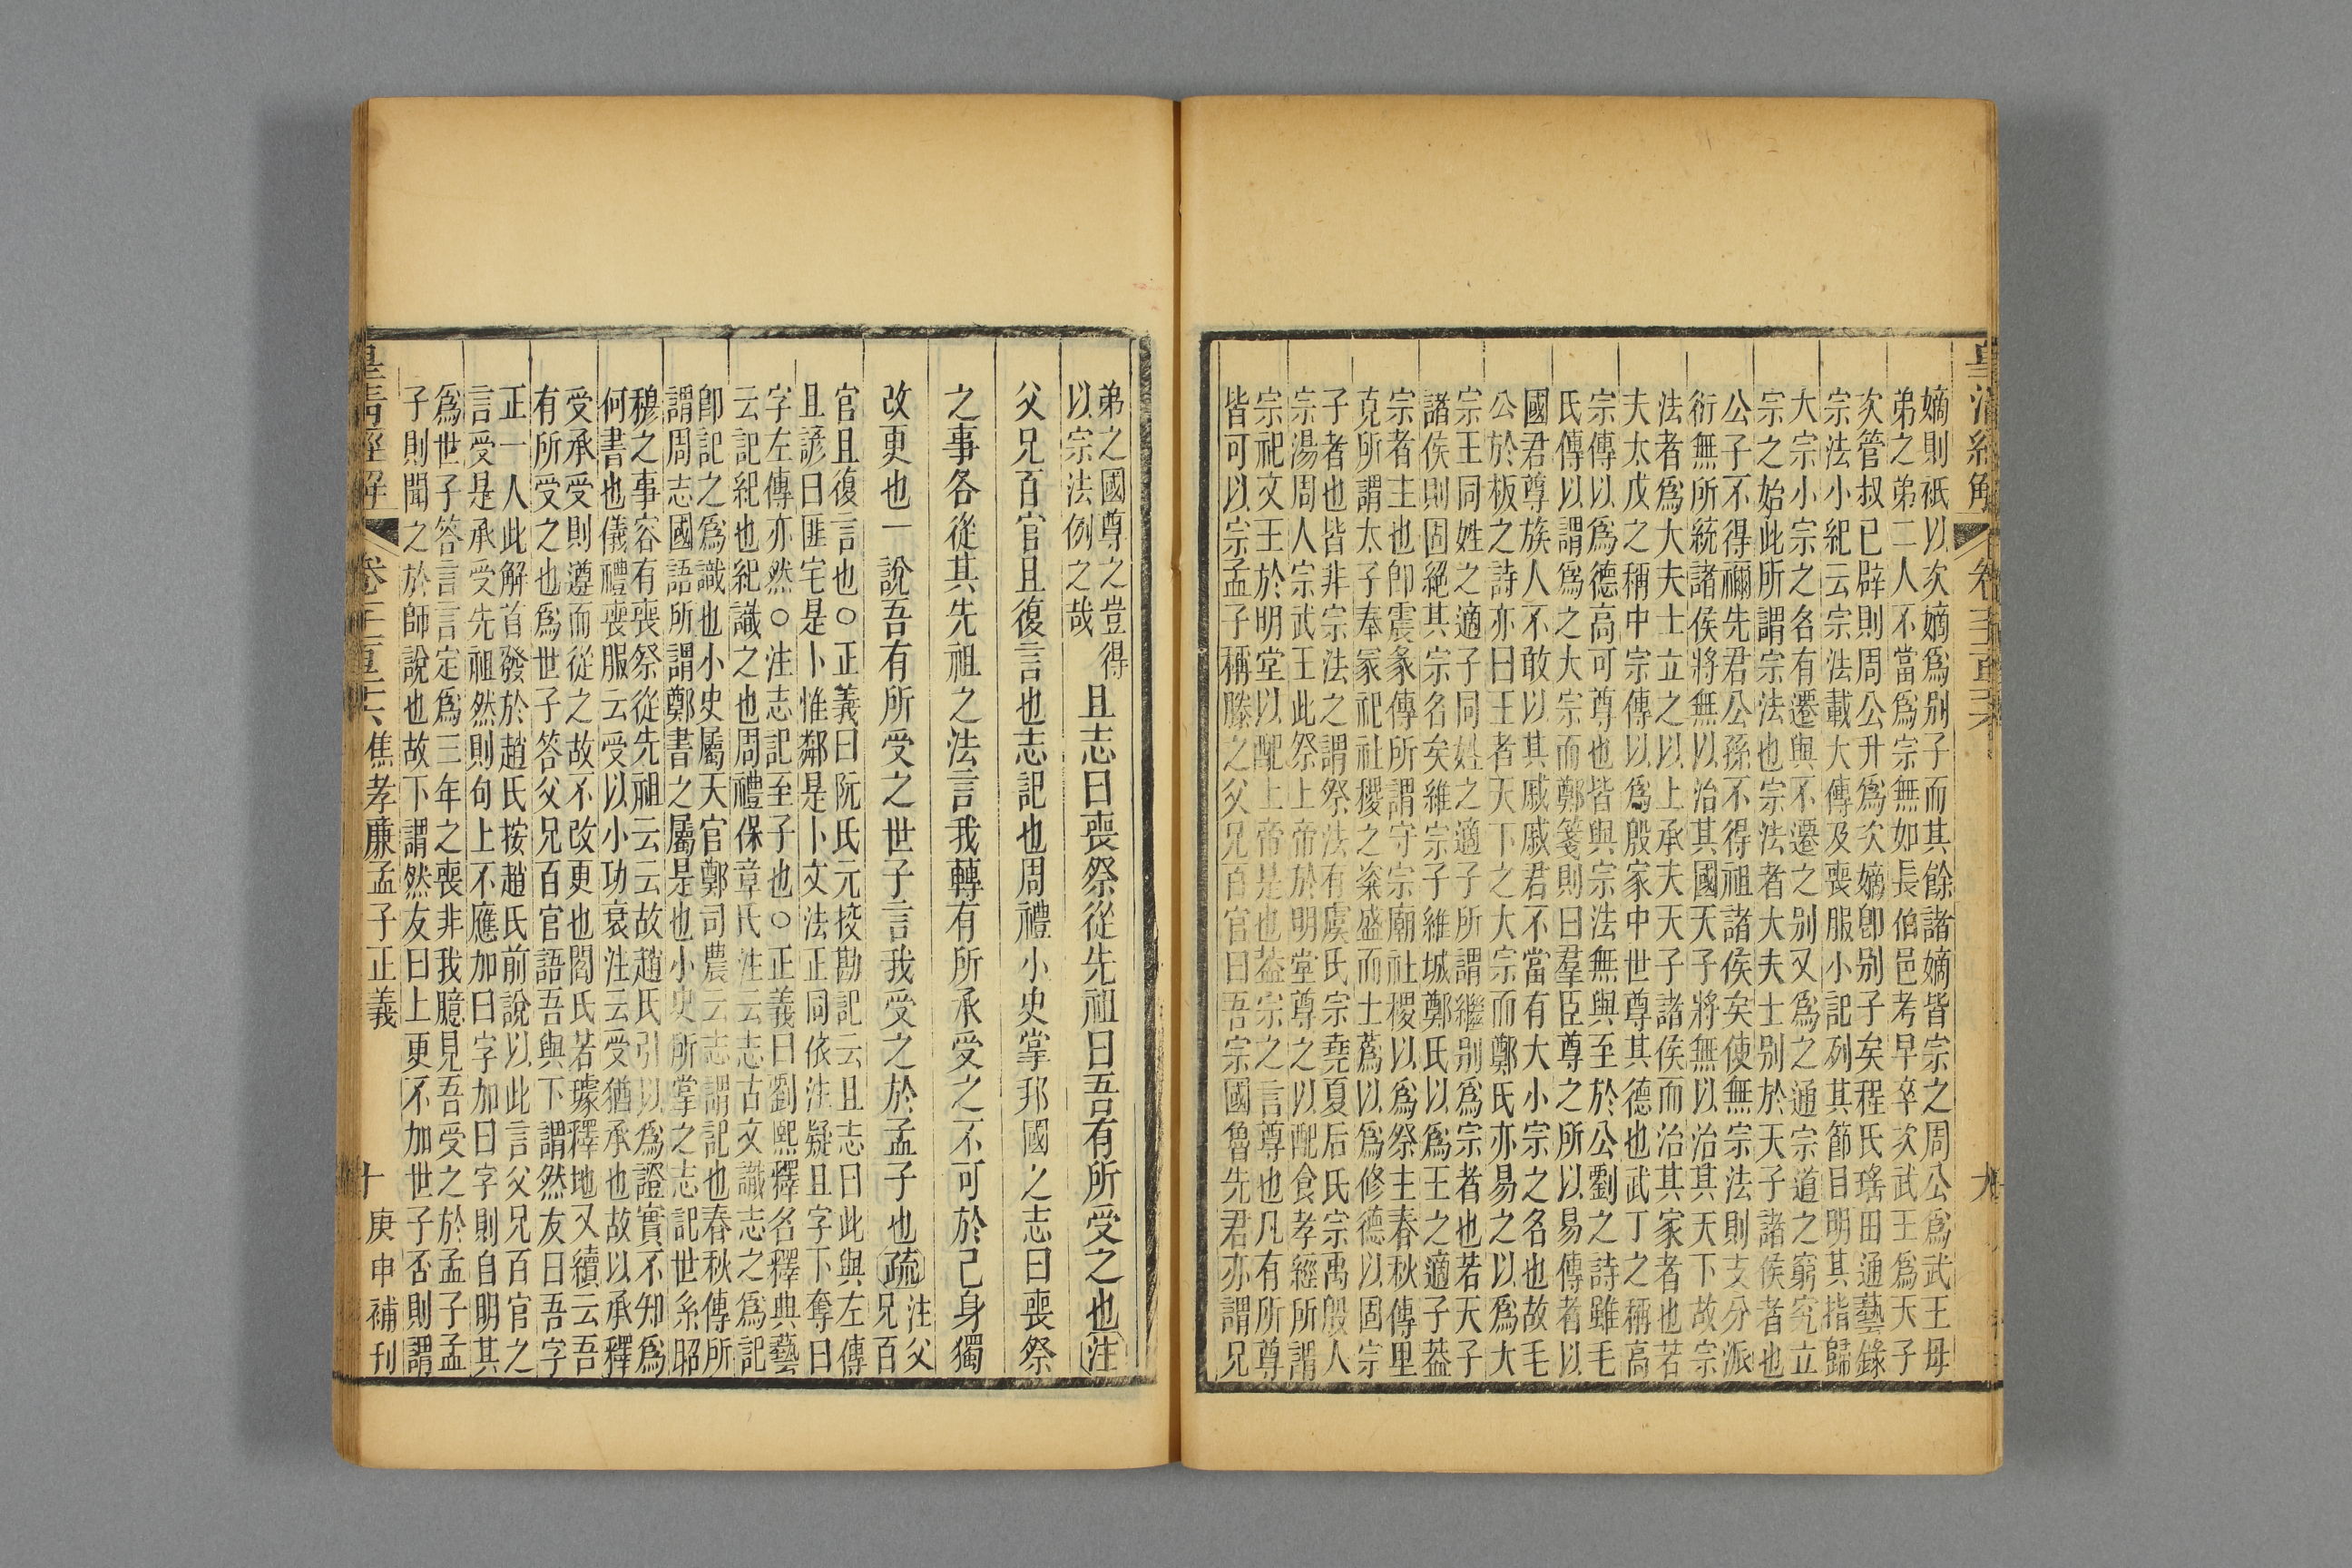 嫡則祇以次嫡爲別子而其餘諸嫡皆宗之周公爲武王母
弟之弟二人不當爲宗無如長伯邑考早卒次武王爲天子
次管叔已辟則周公升爲次嫡卽別子矣程氏瑤田通藝錄
宗法小紀云宗法載大傳及喪服小記列其節目明其指歸
大宗小宗之名有遷與不遷之別又爲之通宗道之窮究立
宗之始此所謂宗法也宗法者大夫士別於天子諸侯者也
公子不得禰先君公孫不得祖諸侯矣使無宗法則支分派
衍無所統諸侯將無以治其國天子將無以治其天下故宗
法者爲大夫士立之以上承夫天子諸侯而治其家者也若
夫太戊之稱中宗傳以爲殷家中世尊其德也武丁之稱高
宗傳以爲德高可尊也皆與宗法無與至於公劉之詩雖毛
氏傳以謂爲之大宗而鄭箋則曰羣臣尊之所以易傳者以
國君尊族人不敢以其戚戚君不當有大小宗之名也故毛
公於板之詩亦曰王者天下之大宗而鄭氏亦易之以爲大
宗王同姓之適子同姓之適子所謂繼別爲宗者也若天子
諸侯則固絕其宗名矣維宗子維城鄭氏以爲王之適子葢
宗者主也卽震彖傳所謂守宗廟社稷以爲祭主春秋傳里
克所謂太子奉冢祀社稷之粢盛而士蒍以爲修德以固宗
子者也皆非宗法之謂祭法有虞氏宗堯夏后氏宗禹殷人
宗湯周人宗武王此祭上帝於明堂尊之以配食孝經所謂
宗祀文王於明堂以配上帝是也葢宗之言尊也凡有所尊
皆可以宗孟子稱滕之父兄百官曰吾宗國魯先君亦謂兄
弟之國尊之豈得
以宗法例之哉
且志曰喪祭從先祖曰吾有所受之也注
父兄百官且復言也志記也周禮小史掌邦國之志曰喪祭
之事各從其先祖之法言我轉有所承受之不可於己身獨
改更也一說吾有所受之世子言我受之於孟子也疏
注父
兄百
官且復言也○正義曰阮氏元挍勘記云且志曰此與左傳
且諺曰匪宅是卜惟鄰是卜文法正同依注疑且字下奪曰
字左傳亦然○注志記至子也○正義曰劉熙釋名釋典藝
云記紀也紀識之也周禮保章氏注云志古文識志之爲記
卽記之爲識也小史屬天官鄭司農云志謂記也春秋傳所
謂周志國語所謂鄭書之屬是也小史所掌之志記世系昭
穆之事容有喪祭從先祖云云故趙氏引以爲證實不知爲
何書也儀禮喪服云受以小功衰注云受猶承也故以承釋
受承受則遵而從之故不改更也閻氏若璩釋地又續云吾
有所受之也爲世子答父兄百官語吾與下謂然友曰吾字
正一人此解首發於趙氏按趙氏前說以此言父兄百官之
言受是承受先祖然則句上不應加曰字加曰字則自明其
爲世子答言言定爲三年之喪非我臆見吾受之於孟子孟
子則聞之於師說也故下謂然友曰上更不加世子否則謂
皇清經解
卷三百三六
焦孝廉孟子正義
十
庚申補刊